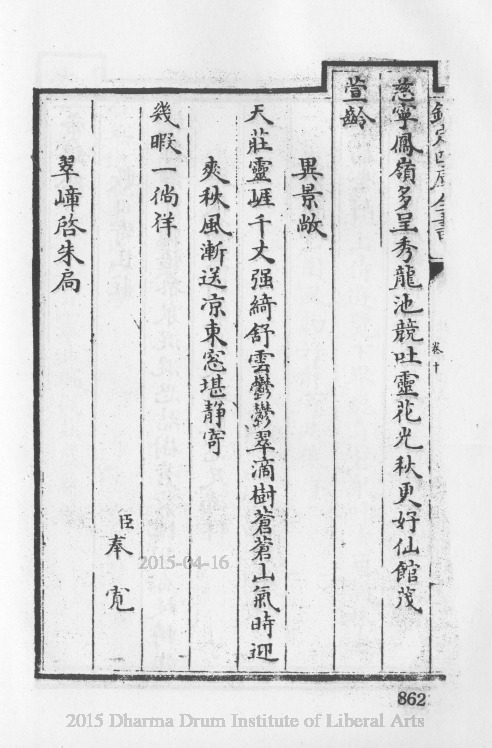 欽定四庫全書
卷十
慈寧鳳嶺多呈秀龍池競吐靈花光秋更好仙館茂
萱齡
異景敞
天莊靈崕千丈强綺舒雲鬱鬱翠滴樹蒼蒼山氣時迎
爽秋風漸送凉東窓堪静寄
幾暇一徜徉
臣奉寛
翠嶂啓朱扃
2015-04-16
862
2015 Dharma Drum Institute of Liberal Arts